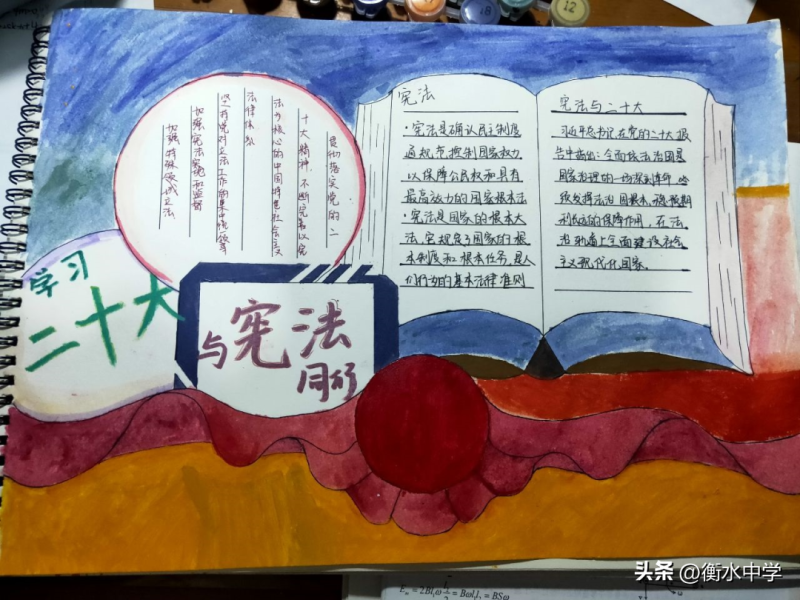 学习
二十大
与宪法
同行
贯彻落实党的二
十大精神,不断完善以宪
法为核心的中国特色社会主义
法律体系
坚持党对立法工作的集中统一领导
加强宪法实施和监督
加强特殊领域立法
宪法
·宪法是确认民主制度
通规范控制国家权力
以保障公民权而具有
最高效力的国家根本法
·宪法是国家的根本大
法,它规定了国家的根
本制度和根本任务,是人
们行为的基本法律准则
宪法与二十大
习近平总书记在党的二十大报
告中指出:全面依法治国是
国家治理的一场深刻革命
发挥法治固根本,稳预期
利长远的保障作用,在法
治轨道上全面建设社会
主义现代化国家。
头条 @衡水中学
12
18